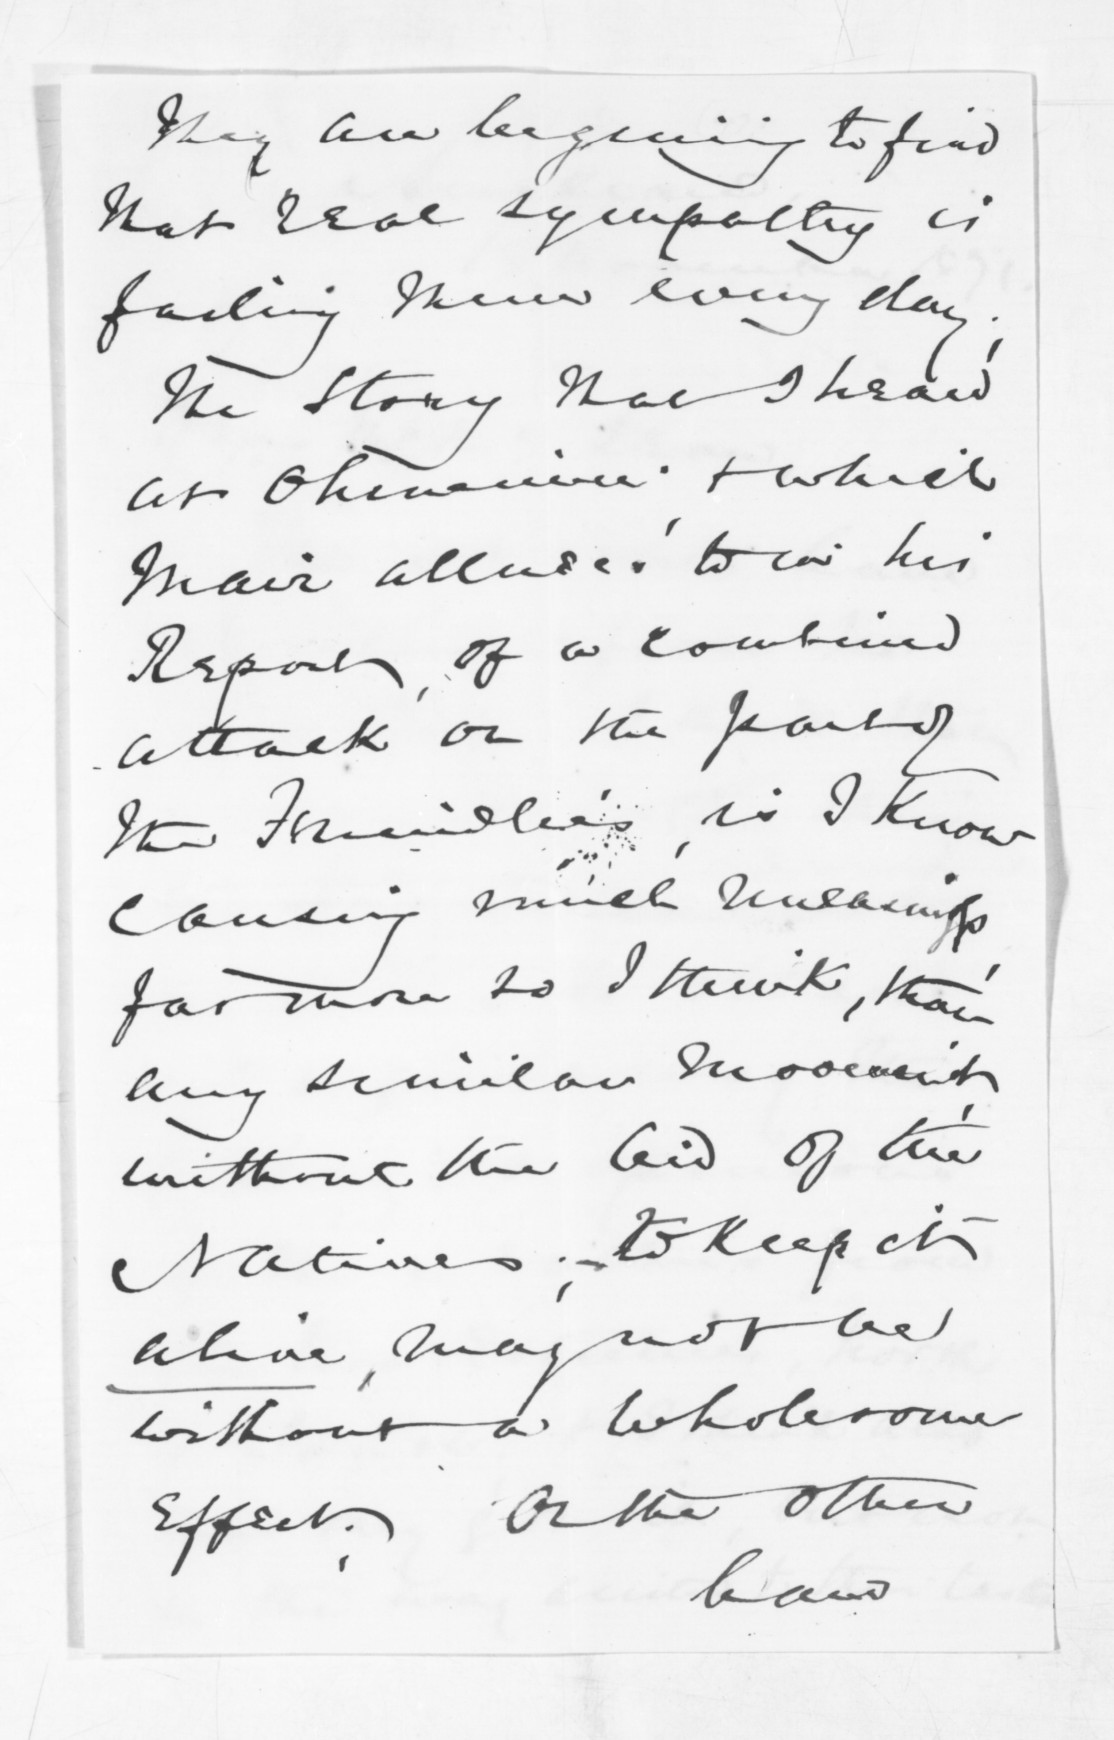 They are begining to find
that real sympathy is
failing them every day;
The Story that I heard
at Ohinemuri & which
Mair alludes to in his
Report, of a combined
attack on the part of
the Friendlies, is I know
causing much uneasiness,
far more so I think, than
any similar movement,
without the aid of the
Natives; to keep it
alive, may not be
without a wholesome
Effect; On the other
hand